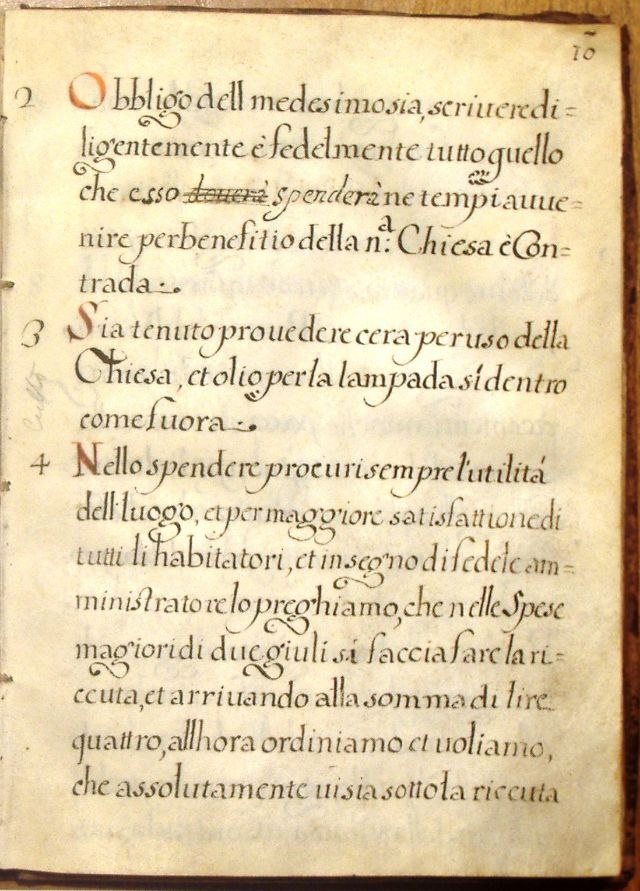 10
2 Obbligo dell medesimo sia, scriuere di=
ligentemente è fedelmente tutto quello
che esso douerà spenderà ne tempi auue=
nire per benefitio della n.ª Chiesa è Con=
trada
3 Sia tenuto prouedere cera per uso della
Chiesa, et olio per la lampada sí dentro
come fuora
4 Nello spendere procuri sempre l'utilitá
dell luogo, et per maggiore satisfattione di
tutti li habitatori, et in segno di fedele am=
ministratore lo preghiamo, che nelle Spese
magiori di due giuli si faccia fare la ri=
ceuta, et arriuando alla somma di lire
quattro, allhora ordiniamo et uoliamo,
che assolutamente ui sia sotto la riceuta